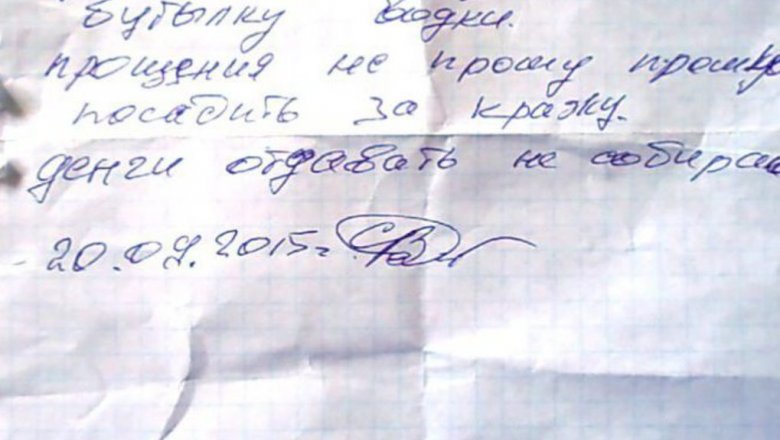 бутылку водки.
прощения не прошу прошу
посадить за кражу.
денги отдавать не собираю
20.09.2015г.